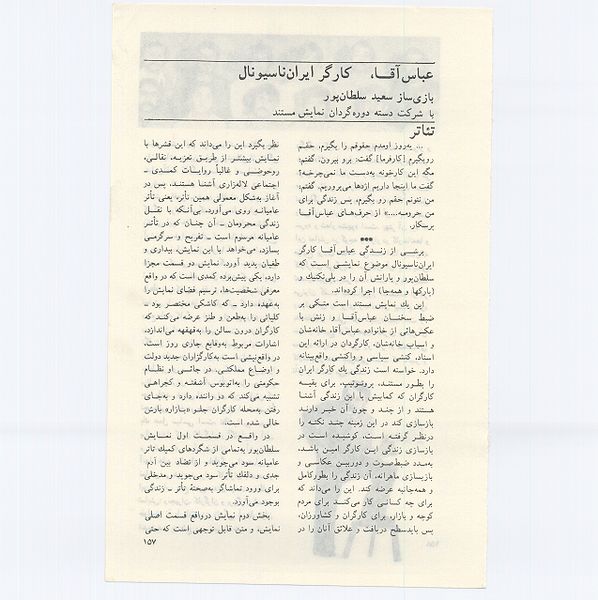 عباس آقـا، کارگر ایران‌ناسیونال
بازی‌ساز سعید سلطان‌پور
با شرکت دسته دوره‌گردان نمایش مستند
تئاتر
... یه‌روز اومدم حقوقم را بگیرم، حقم
روبگیرم [کارفرما] گفت: برو بیرون. گفتم:
مگه این کارخونه به‌دست ما نمی‌چرخه؟
گفت ما اینجا داریم اژدها می‌پروریم. گفتم:
من نتونم حقم رو بگیرم، پس زندگی برای
من حرومه....» از حرف‌های عباس‌آقـا
پرسکار.
***
برشـی از زنـدگـی عبـاس‌آقـا کارگر
ایران‌ناسیونال موضوع نمایشـی اسـت که
سلطان‌پور و یارانش آن را در پلی‌تکنیك و
(پارکها و همه‌جا) اجرا کرده‌اند.
این یك نمایش مستند است متکـی بر
ضبط سخنـان عبـاس‌آقـا و زنش با
عکس‌هائی از خانواده عباس‌آقا، خانه‌شان
و اسباب خانه‌شان. کارگردان در ارائه این
اسناد، کنشی سیاسی و واکنشی واقع‌بینانه
دارد. خواسته است زندگی یك کارگر ایران
را بطور مستند، پروتوتیپ، برای بقیـه
کارگران که کمابیش با این زندگی آشنا
هستند و از چند و چون آن خبـر دارنـد
بازسازی کند در این زمینه چند نکتـه را
درنظر گرفتـه اسـت، کوشیـده اسـت در
بازسازی زندگی ایـن کارگر امین باشـد،
به‌مدد ضبط‌صوت و دوربین عکاسـی و
بازیسازی ماهرانه، آن زندگی را بطورکامل
و همه‌جانبه عرضه کند. این را می‌داند که
برای چه کسانی کار می‌کنـد: برای مردم
کوچه و بازار، برای کارگران و کشاورزان،
پس بایدسطح دریافت و علائق آنان را در
نظر بگیرد این را می‌داند که این قشرها با
نمایش بیشتر از طریق تعزیه، نقالی،
روحوضی و غالباً روایات کمدی ـ
اجتماعی لاله‌زاری آشنـا هستنـد. پس در
آغاز به‌شکل معمولی همین تأتر، یعنی تأتر
عامیانه روی می‌آورد. بی‌آنکـه با نقـل
زندگی محرومان ـ آن چنان که در تأتـر
عامیانه مرسوم است ـ تفریـح و سرگرمی
بسازد، می‌خواهد با این نمایش، بیداری و
طغیان پدید آورد. نمایش دو قسمت مجزا
دارد، یکی پیش‌پرده کمدی است که در واقع
معرفی شخصیت‌ها، ترسیم فضای نمایش را
به‌عهده دارد ـ که کاشکی مختصر بود ـ
کلیاتی را به‌طعن و طنز عرضه می‌کنـد که
کارگران درون سالن را به‌قهقهه می‌اندازد.
اشارات مربوط به‌وقایع جاری روز است.
در واقع‌نیشی است به‌کارگزاران جدید دولت
و اوضـاع مملکتـی. در جائـی او نظـام
حکومتی را به‌اتوبوس آشفتـه و کج‌راهی
تشبیه می‌کند که دو راننده دارد و به‌جای
رفتن به‌محله کارگران جلو «بـازار» بارش
خالی شده است.
در واقـع در قسمت اول نمـایـش
سلطان‌پور به‌تمامی از شگردهای کمیك تأتر
عامیانه سود می‌جوید و از تضاد بین آدم
جدی و دلقك تأتر سود می‌جوید و مدخلی
برای ورود تماشاگر به‌صحنهٔ تأتر ـ زندگی
بوجود می‌آورد.
بخش دوم نمایش درواقع قسمت اصلی
نمایش، و متن قابل توجهی است که حتی
۱۵۷